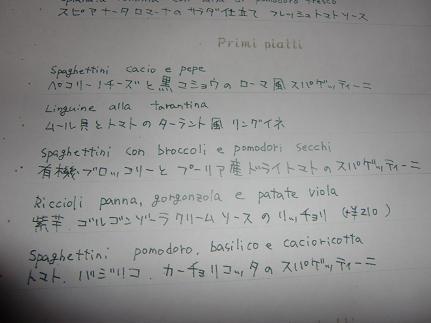 スピアナータロマーナのサラダ仕立て フレッシュトマトソース
Primi piatti
Spaghettini cacio e pepe
ペコリーノチーズと黒コショウのローマ風スパゲッティーニ
Linguine alla tarantina
ムール貝とトマトのターラント風リングイネ
Spaghettini con broccoli e pomodori secchi
有機ブロッコリーとプーリア産ドライトマトのスパゲッティーニ
Riccioli panna, gorgonzola e patate viola
紫芋、ゴルゴンゾーラクリームソースのリッチョリ (+¥210)
Spaghettini pomodoro, basilico e cacioricotta
トマト、バジリコ、カーチョリコッタのスパゲッティーニ